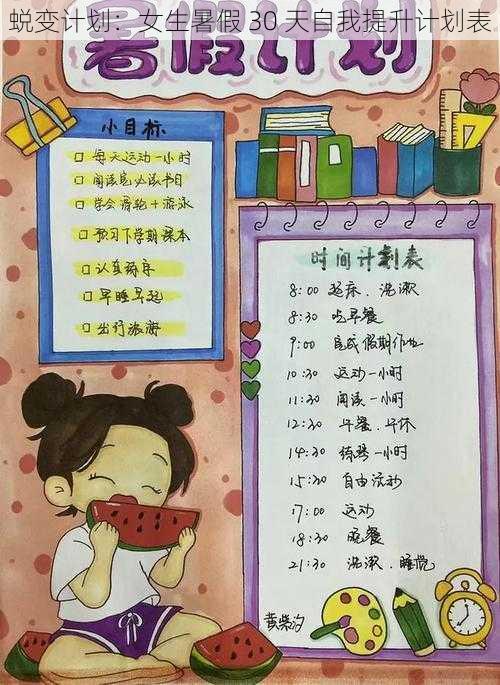 蜕变计划：女生暑假 30 天自我提升计划表
暑假计划
小目标
每天运动一小时
阅读完必读书目
学会滑轮+游泳
预习下学期课本
认真练琴
早睡早起
出行旅游
时间计划表
8:00 起床、洗漱
8:30 吃早餐
9:00 完成假期作业
10:30 运动一小时
11:30 阅读一小时
12:30 午餐、午休
14:30 练琴一小时
15:30 自由活动
17:00 运动
18:30 晚餐
21:30 洗漱、睡觉